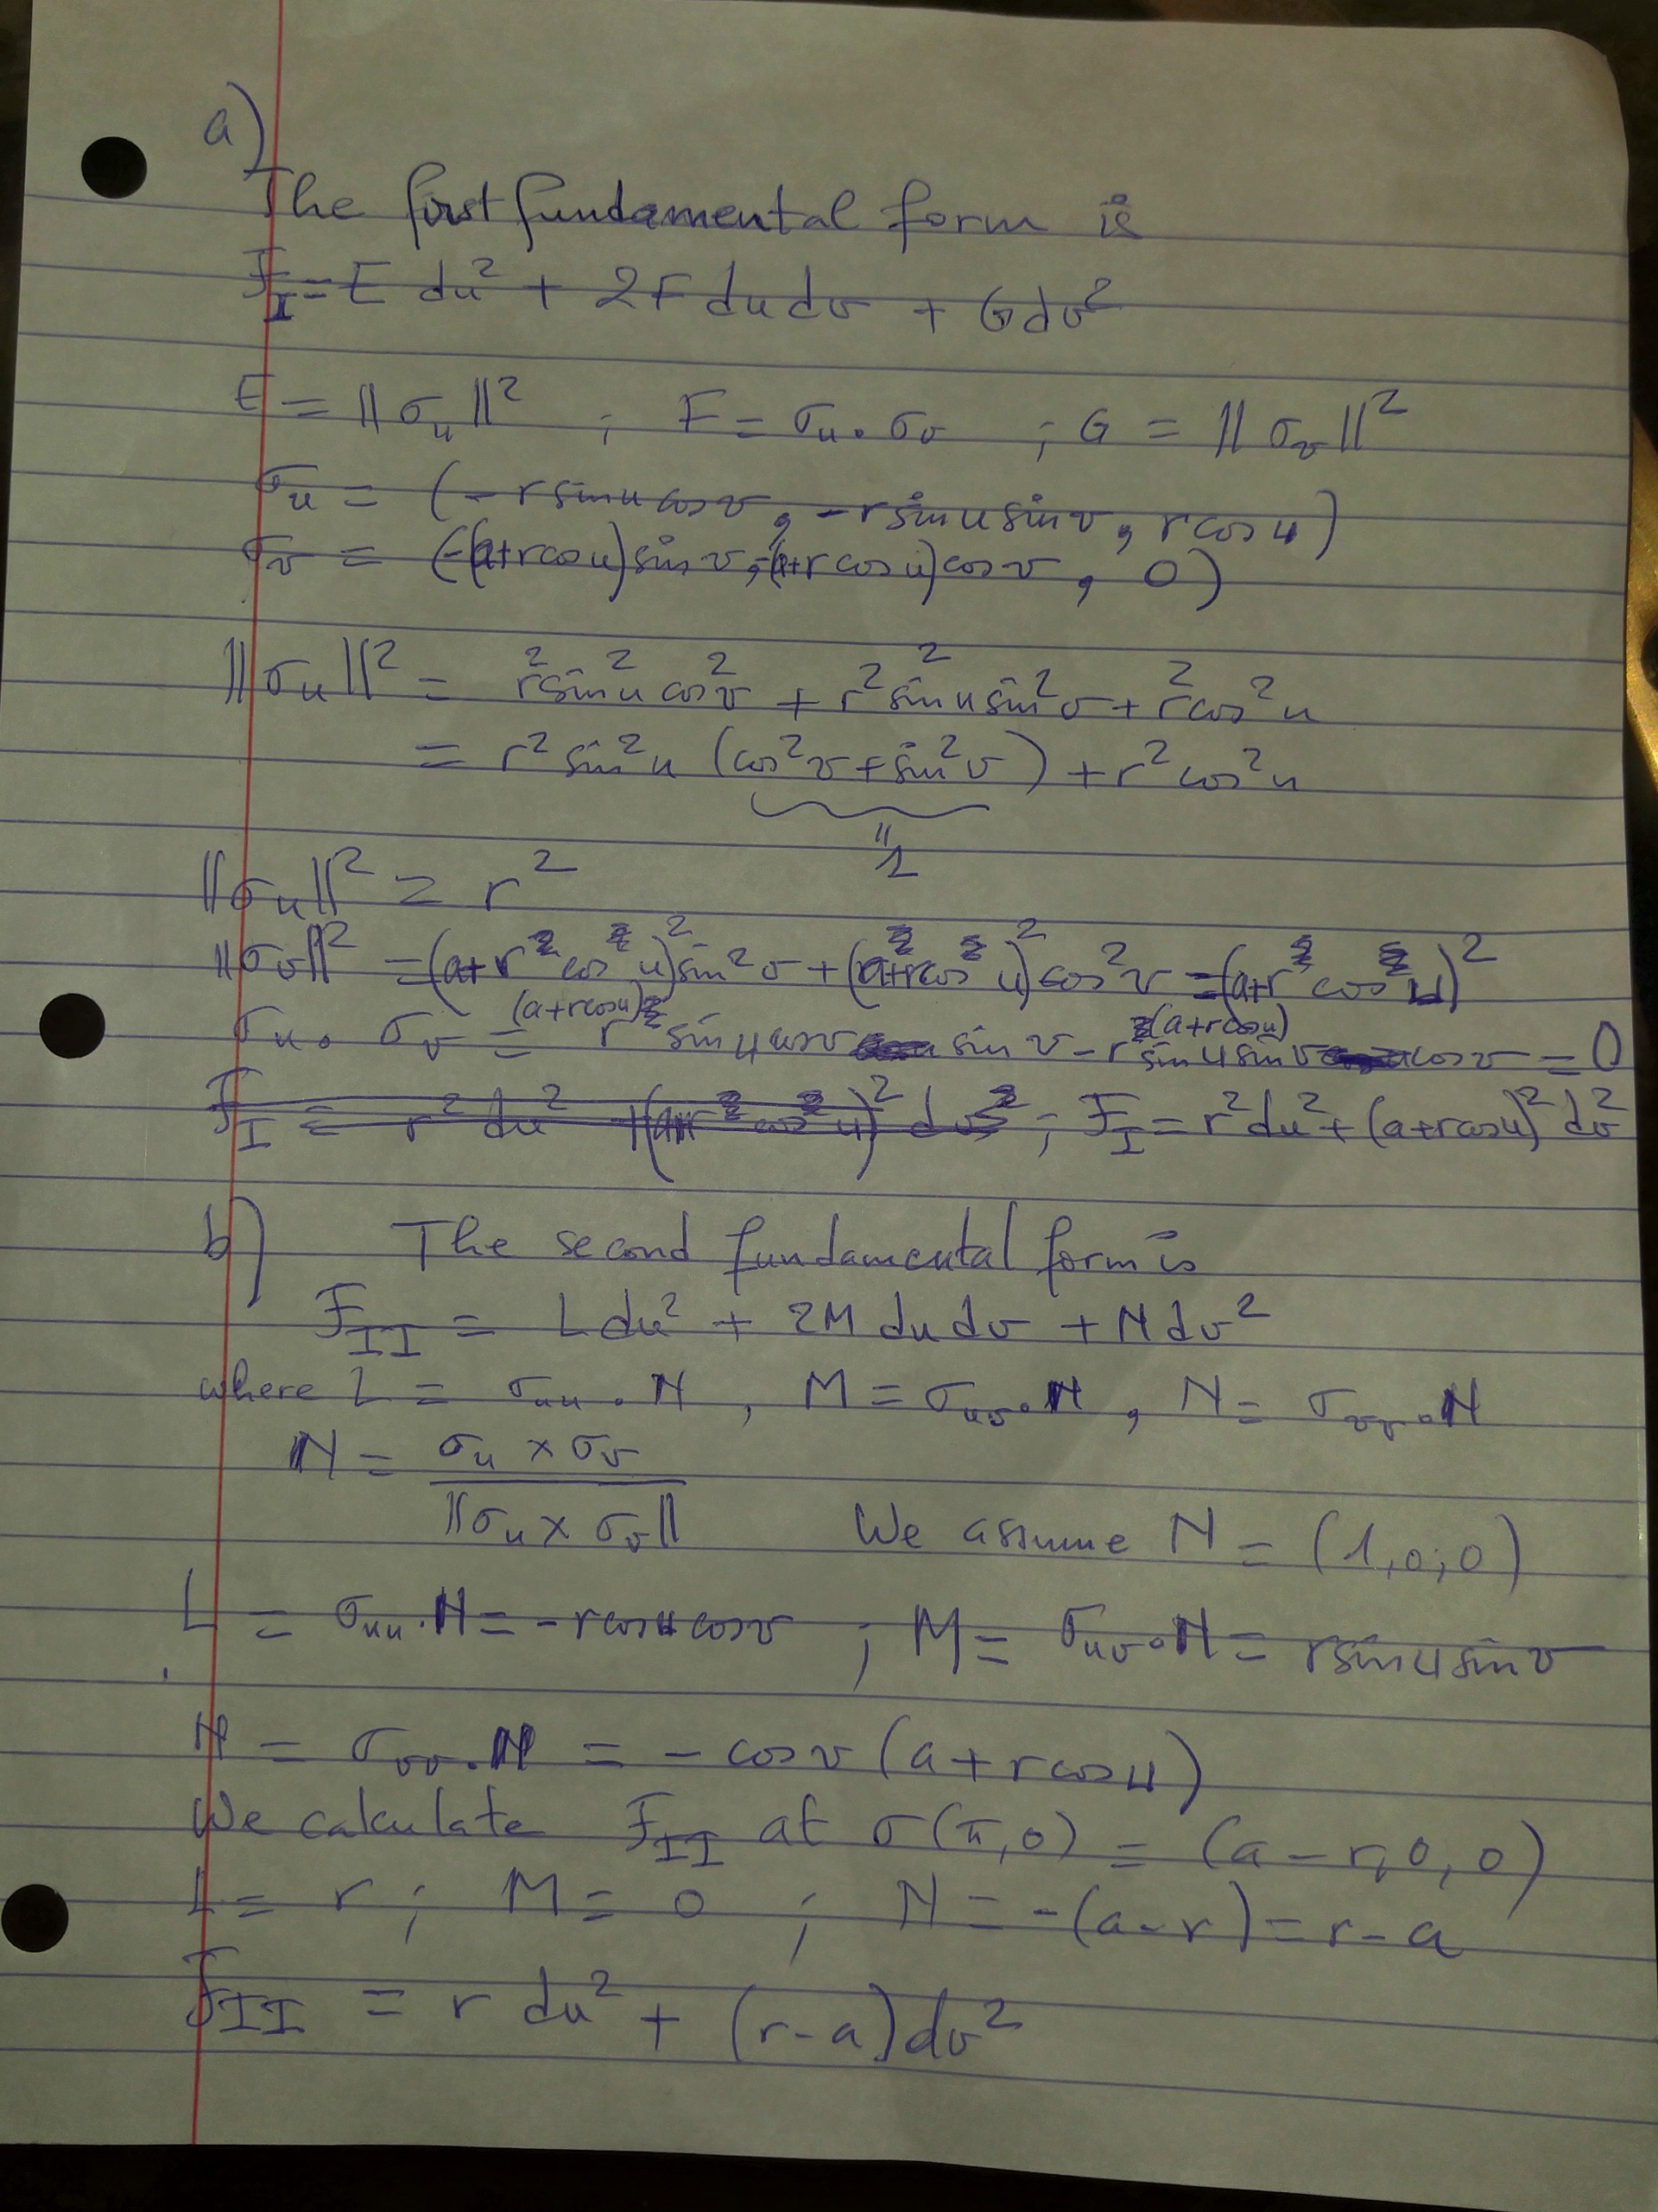 a)
The first fundamental form is
F_I = E du² + 2F du dv + G dv²
E = ||σ_u||² ; F = σ_u · σ_v ; G = ||σ_v||²
σ_u = (-r sin u cos v, -r sin u sin v, r cos u)
σ_v = (-(a+r cos u) sin v, (a+r cos u) cos v, 0)
||σ_u||² = r² sin² u cos² v + r² sin² u sin² v + r² cos² u
= r² sin² u (cos² v + sin² v) + r² cos² u
"1
||σ_u||² = r²
||σ_v||² = (a+r cos u)² sin² v + (a+r cos u)² cos² v = (a+r cos u)²
σ_u · σ_v = r (a+r cos u) sin u cos v sin v - r (a+r cos u) sin u sin v cos v = 0
F_I = r² du² + (a+r cos u)² dv² ; F_I = r² du² + (a+r cos u)² dv²
b) The second fundamental form is
F_II = L du² + 2M du dv + N dv²
where L = σ_uu · N, M = σ_uv · N, N = σ_vv · N
N = σ_u × σ_v / ||σ_u × σ_v|| We assume N = (1,0,0)
L = σ_uu · N = -r cos u cos v ; M = σ_uv · N = r sin u sin v
N = σ_vv · N = - cos v (a + r cos u)
We calculate F_II at σ(π,0) = (a-r,0,0)
L = r ; M = 0 ; N = -(a-r) = r-a
F_II = r du² + (r-a) dv²